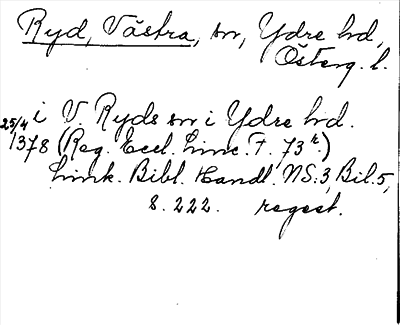 Ryd, Västra, sn, Ydre hd,
Österg. l.
25/4 i V. Ryds sn i Ydre hd.
1378 (Reg. Eccl. Linc. F. 73 r)
Link. Bibl. Handl. NS:3, Bil. 5,
s. 222. regest.